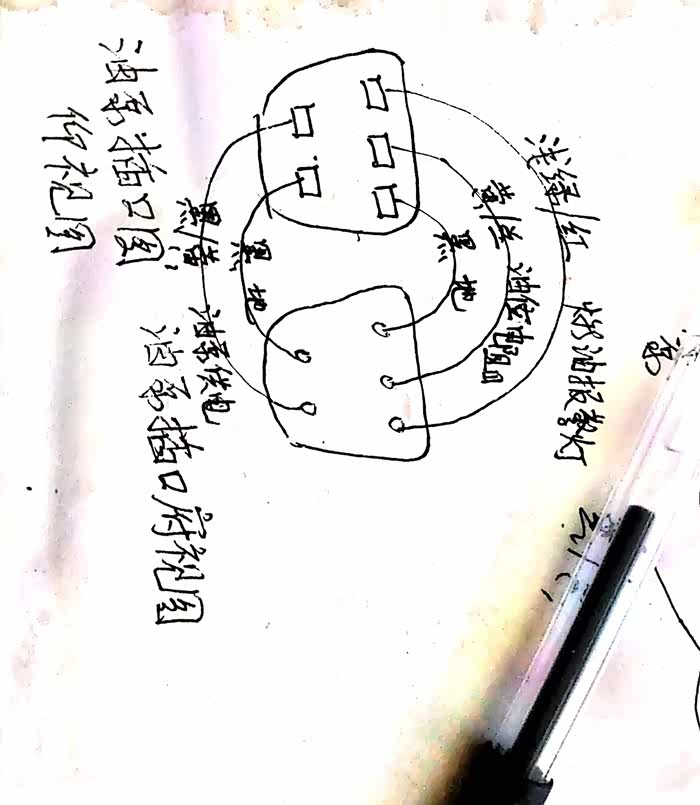 油泵插口图
仰视图
浅绿/红
燃油报警灯
黄/蓝 油位电阻
黑 地
黑 地
黑/黄
油泵供电
油泵插口府视图
泵